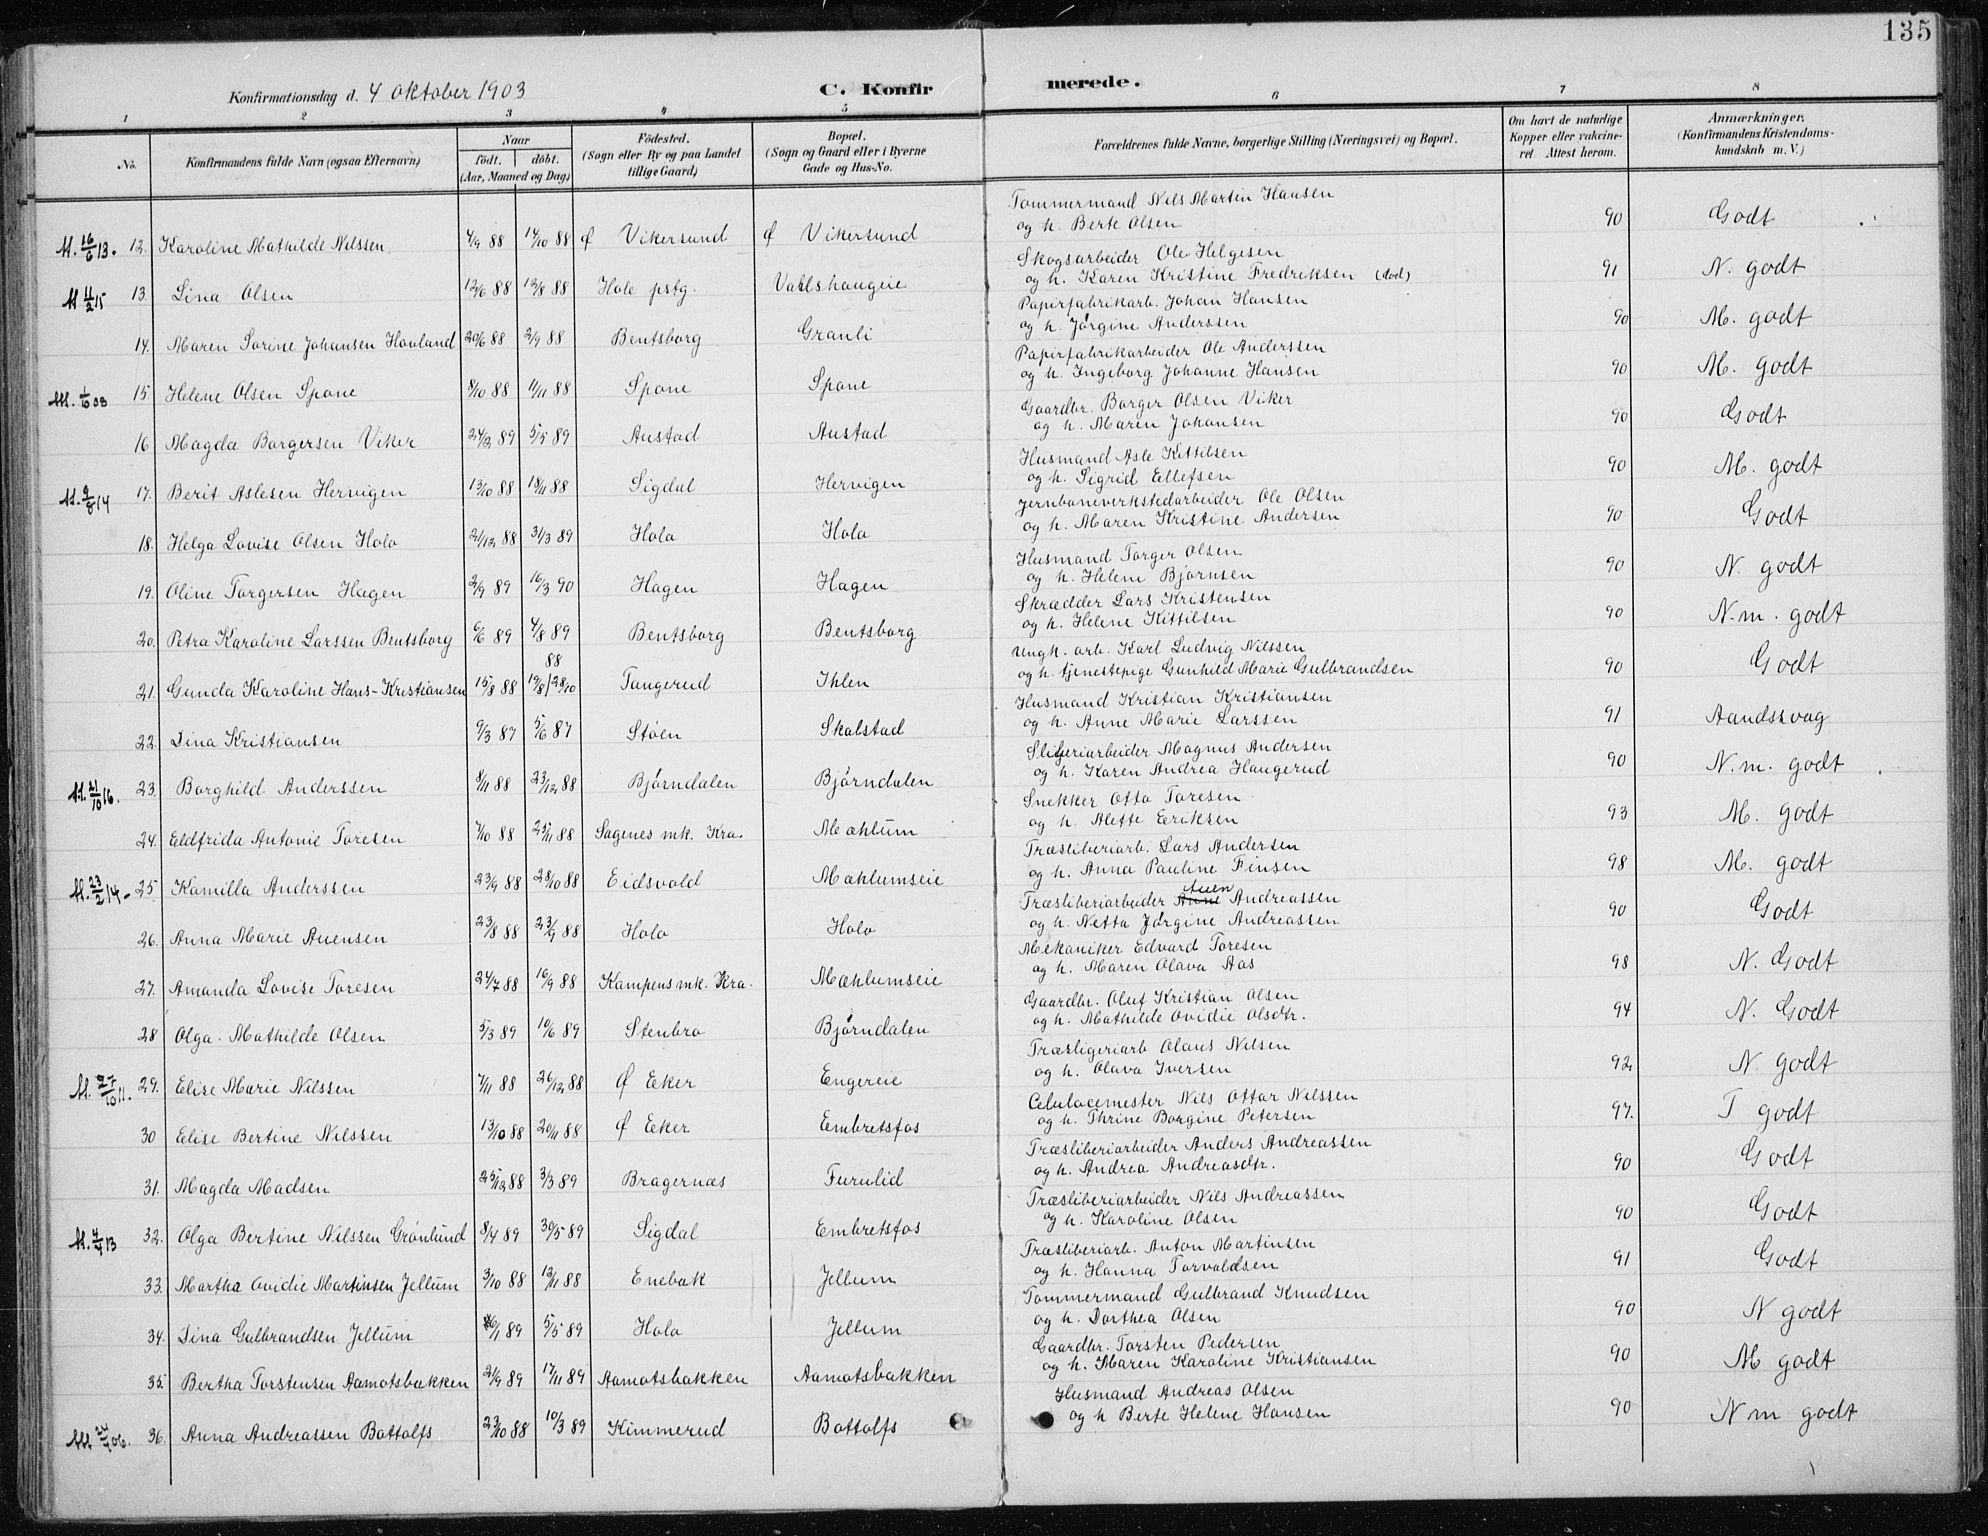 135
Konfirmationsdag d. 4 oktober 1903
C. Konfirmerede.
1 2 3 4 5 6 7 8
No. Konfirmandens fulde Navn (ogsaa Efternavn) Naar født. døbt. (Aar, Maaned og Dag) Fødested. (Sogn eller By og paa Landet tillige Gaard) Bopæl. (Sogn og Gaard eller i Byerne Gade og Hus-No. Forældrenes fulde Navne, borgerlige Stilling (Næringsvei) og Bopæl. Om havt de naturlige Kopper eller vakcineret. Attest herom. Anmærkninger. (Konfirmandens Kristendomskundskab m. V.)
Tømmermand Nils Martin Hansen
M. 16/6 13. 12. Karoline Mathilde Nilssen 4/9 88 14/10 88 Ø Vikersund Ø Vikersund og h. Berte Olsen 90 Godt
Skogsarbeider Ole Helgesen
M 11/2 15 13. Lina Olsen 12/6 88 12/8 88 Hole pstg. Vatlshaugeie og h. Karen Kristine Fredriksen (død) 91 N. godt
Papirfabrikarb. Johan Hansen
14. Maren Sorine Johansen Hovland 20/6 88 2/9 88 Bentsborg Granli og h. Jørgine Anderssen 90 M. godt
Papirfabrikarbeider Ole Anderssen
M. 1/6 08 15 Helene Olsen Spone 8/10 88 11/11 88 Spone Spone og h. Ingeborg Johanne Hansen 90 M. godt
Gaardbr. Borger Olsen Viker
16 Magda Borgersen Viker 24/2 89 5/5 89 Austad Austad og h. Maren Johansen 90 Godt
Husmand Asle Kittilsen
M. 9/8 14 17. Berit Aslesen Hervigen 13/10 88 18/11 88 Sigdal Hervigen og h. Sigrid Ellefsen 90 M. godt
Jernbaneverkstedarbeider Ole Olsen
18. Helga Lovise Olsen Holo 21/12 88 3/3 89 Holo Holo og h. Maren Kristine Andersen 90 Godt
Husmand Torger Olsen
19. Oline Torgersen Hagen 2/9 89 16/3 90 Hagen Hagen og h. Helene Bjørnsen 90 N. godt
Skrædder Lars Kristensen
20. Petra Karoline Larssen Bentsborg 6/6 89 4/8 89 Bentsborg Bentsborg og h. Helene Kittilsen 90 N.m. godt
Ungk. arb. Karl Ludvig Nilssen
21. Gunda Karoline Hans-Kristiansen 15/8 88 19/8 88 | 28/10 Tangerud Ihlen og h. tjenestepige Gunhild Marie Gulbrandsen 90 Godt
Husmand Kristian Kristiansen
22. Dina Kristiansen 9/3 87 5/6 87 Støen Skalstad og h. Anne Marie Larssen 91 Aandssvag
Sliberiarbeider Magnus Andersen
M. 21/10 16. 23. Borghild Anderssen 8/11 88 23/12 88 Bjørndalen Bjørndalen og h. Karen Andrea Haugerud 90 N.m. godt
Snekker Otto Toresen
24. Eldfrida Antonie Toresen 7/10 88 25/11 88 Sagenes mk. Kra. Mæhlum og h. Alette Eriksen 93 M. godt
Træsliberiarb. Lars Andersen
M. 23/2 14 25. Kamilla Anderssen 23/9 88 28/10 88 Eidsvold Mæhlumseie og h. Anna Pauline Finsen 98 M. godt
Træsliberiarbeider Auen Andreassen
26. Anna Marie Auensen 23/8 88 23/9 88 Holo Holo og h. Netta Jørgine Andreassen 90 Godt
Mekaniker Edvard Toresen
27. Amanda Lovise Toresen 24/7 88 16/9 88 Kampens mk. Kra. Mæhlumseie og h. Maren Olava Aas 98 N. Godt
Gaardbr. Oluf Kristian Olsen
28 Olga Mathilde Olsen 5/3 89 10/6 89 Stenbro Bjørndalen og h. Mathilde Ovidie Olsdtr. 94 N. Godt
Træsligeriarb Olaus Nilsen
M. 27/10 11. 29. Elise Marie Nilssen 7/11 88 26/12 88 Ø Eker Engereie og h. Olava Iversen 92 N. godt
Celulocemester Nils Ottar Nilssen
30 Elise Bertine Nilssen 13/10 88 20/11 88 Ø Eker Embretsfos og h. Thrine Borgine Petersen 97. T godt
Træsliberiarbeider Anders Andreassen
31. Magda Madsen 25/12 88 3/3 89 Bragernæs Furulid og h. Andrea Andreasdtr. 90 Godt
Træsliberiarbeider Nils Andreassen
M. 4/4 13 32. Olga Bertine Nilssen Grønlund 8/4 89 30/5 89 Sigdal Embretsfos og h. Karoline Olsen 90 Godt
Træsliberiarb. Anton Martinsen
33. Martha Ovidie Martinsen Jellum 3/10 88 12/11 88 Enebak Jellum og h. Hanna Torvaldsen 91 Godt
Tømmermand Gulbrand Knudsen
34. Dina Gulbrandsen Jellum 26/1 89 5/5 89 Holo Jellum og h. Dorthea Olsen 90 N godt
Gaardbr. Torsten Pedersen
35. Bertha Torstensen Aamotsbakken 21/9 89 17/11 89 Aamotsbakken Aamotsbakken og h. Maren Karoline Kristiansen 90 M godt
Husmand Andreas Olsen
M 06. 36. Anna Andreassen Bottolfs 23/10 88 10/3 89 Kimmerud Bottolfs og h Berte Helene Hansen 90 N m godt